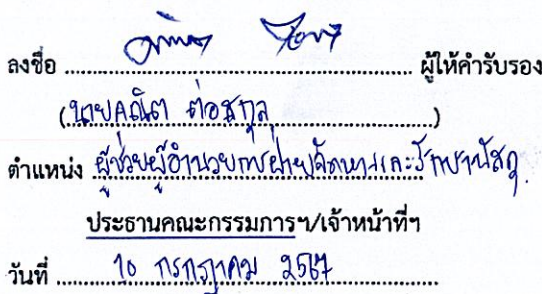 ลงชื่อ ผู้ให้คำรับรอง
(นายคณิต ต่อสกุล)
ตำแหน่ง ผู้ช่วยผู้อำนวยการฝ่ายจัดหาและรักษาพัสดุ
ประธานคณะกรรมการฯ/เจ้าหน้าที่ฯ
วันที่ 10 กรกฎาคม 2567